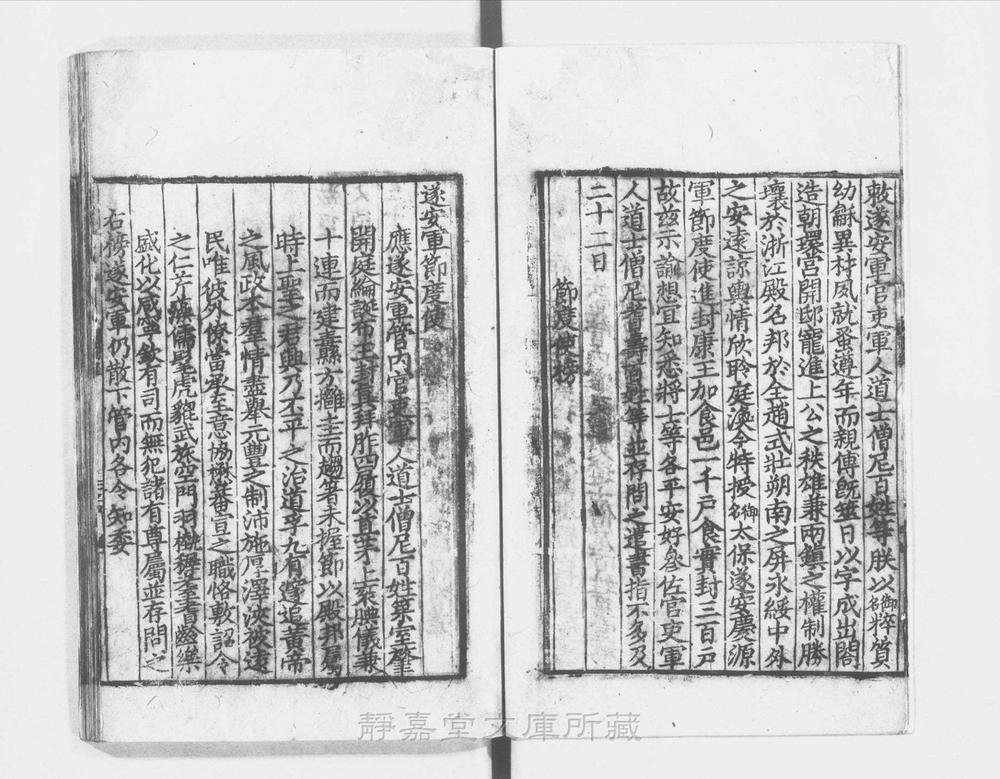 敕遂安軍官吏軍人道士僧尼百姓等朕以御名粹質
幼龢異材夙就蚤遵年而親傅旣筮日以字成出閤
造朝環宮開邸寵進上公之秩雄兼兩鎮之權制勝
壤於浙江殿名邦於全趙式壯朔南之屏永綏中外
之安遠諒輿情欣聆庭渙今特授御名太保遂安慶源
軍節度使進封康王加食邑一千戶食實封三百戶
故兹示諭想宜知悉將士等各平安好參佐官吏軍
人道士僧尼耆壽百姓等並存問之遣書指不多及
二十二日
節度使榜
遂安軍節度使
應遂安軍管内官吏軍人道士僧尼百姓築室肇
開庭綸誕布王封眞拜胙四履以苴茅上衮腆儀兼
十連而建纛方攡圭而趨著未握節以殿邦屬
時上聖之君興乃太平之治道孚九有邃追黃帝
之風政本羣情盡舉元豐之制沛施厚澤浹被遠
民唯彼外僚當承至意協楙蕃宣之職恪敷詔令
之仁
盛化以咸寧欽有司而無犯諸有尊屬並存問之
右榜遂安軍仍散下管内各令知委
靜嘉堂文庫所藏